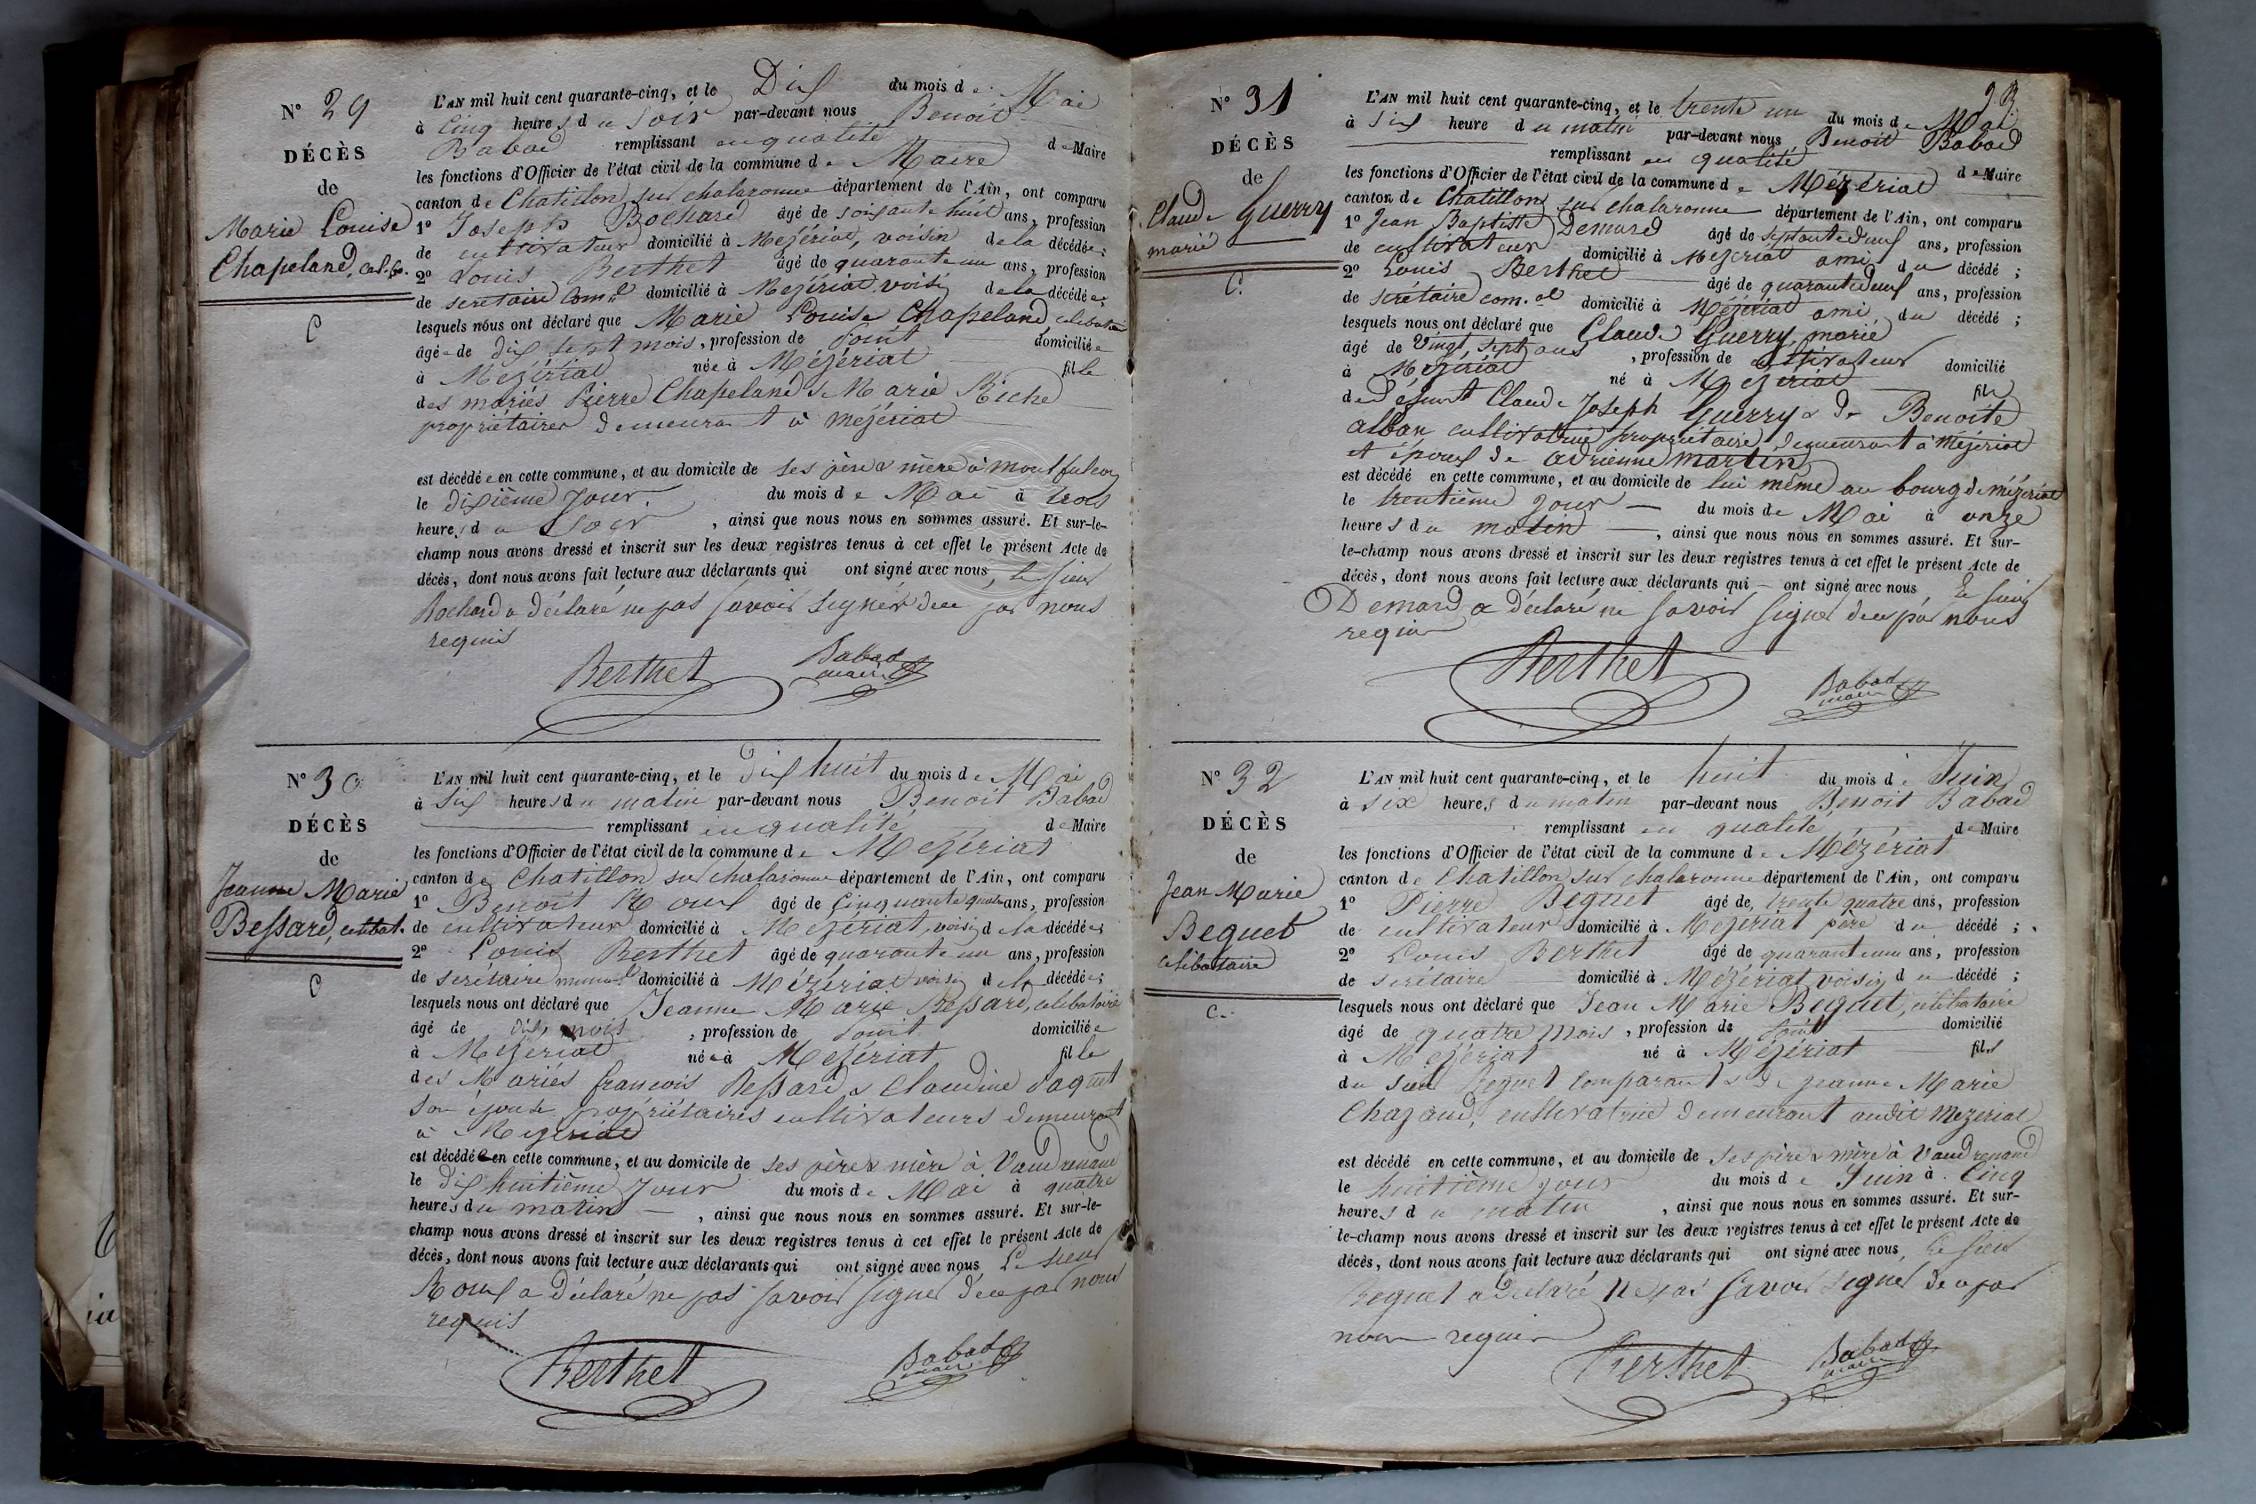 N° 29
DÉCÈS
de
Marie Louise
Chapeland, cel.re.
C
L'AN mil huit cent quarante-cinq, et le Dix du mois de Mai
à cinq heures du soir par-devant nous Benoit
Babad remplissant en qualité de Maire
les fonctions d'Officier de l'état civil de la commune de Maire
canton de Chatillon sur chalaronne département de l'Ain, ont comparu
1° Joseph Bochard âgé de soixante huit ans, profession
de cultivateur domicilié à Mézériat, voisin de la décédée;
2° Louis Berthet âgé de quarante un ans, profession
de secrétaire domicilié à Mezériat voisin de la décédée;
lesquels nous ont déclaré que Marie Louise Chapeland celibataire
âgée de dix sept mois, profession de point domiciliée
à Mézériat née à Mézériat fille
des mariés Pierre Chapeland & Marie Riche
propriétaires demeurant à mézériat
est décédée en cette commune, et au domicile de ses père & mère à montfalcon
le dixième jour du mois de Mai à trois
heures du soir, ainsi que nous nous en sommes assuré. Et sur-le-
champ nous avons dressé et inscrit sur les deux registres tenus à cet effet le présent Acte de
décès, dont nous avons fait lecture aux déclarants qui ont signé avec nous, le sieur
Bochard a déclaré ne pas savoir signer de ce par nous
requis
Berthet Babad
maire
N° 30
DÉCÈS
de
Jeanne Marie
Bessard, celibat.
C
L'AN mil huit cent quarante-cinq, et le dix huit du mois de Mai
à six heures du matin par-devant nous Benoit Babad
remplissant en qualité de Maire
les fonctions d'Officier de l'état civil de la commune de Mézériat
canton de Chatillon sur chalaronne département de l'Ain, ont comparu
1° Benoit Roux âgé de cinquante quatre ans, profession
de cultivateur domicilié à Mézériat, voisin de la décédée;
2° Louis Berthet âgé de quarante un ans, profession
de secrétaire domicilié à Mézériat voisin de la décédée;
lesquels nous ont déclaré que Jeanne Marie Bessard, celibataire
âgé de dix mois, profession de point domiciliée
à Mézériat née à Mézériat fille
des Mariés françois Bessard & Claudine Paquet
son épouse propriétaires cultivateurs demeurant
à Mezeriat
est décédée en cette commune, et au domicile de ses père & mère à Vaudrenand
le dix huitième jour du mois de Mai à quatre
heures du matin, ainsi que nous nous en sommes assuré. Et sur-le-
champ nous avons dressé et inscrit sur les deux registres tenus à cet effet le présent Acte de
décès, dont nous avons fait lecture aux déclarants qui ont signé avec nous Le sieur
Roux a déclaré ne pas savoir signer de ce par nous
requis
Berthet Babad
maire
N° 31
DÉCÈS
de
Claude Guerry
marié
C.
L'AN mil huit cent quarante-cinq, et le trente un du mois de Mai
à six heure du matin par-devant nous Benoit Babad
remplissant en qualité de Maire
les fonctions d'Officier de l'état civil de la commune de Mézériat
canton de Chatillon sur chalaronne département de l'Ain, ont comparu
1° Jean Baptiste Demard âgé de septante deux ans, profession
de cultivateur domicilié à Mézériat ami du décédé;
2° Louis Berthet âgé de quarante deux ans, profession
de secrétaire com.al domicilié à Mézériat ami du décédé;
lesquels nous ont déclaré que Claude Guerry, marié
âgé de vingt sept ans, profession de cultivateur domicilié
à Mézériat né à Mézériat fils
de défunt Claude Joseph Guerry & de Benoite
alban cultivatrice propriétaire demeurant à Mézériat
et époux de adrienne martin
est décédé en cette commune, et au domicile de lui même au bourg de mézériat
le trentième jour du mois de Mai à onze
heures du matin, ainsi que nous nous en sommes assuré. Et sur-
le-champ nous avons dressé et inscrit sur les deux registres tenus à cet effet le présent Acte de
décès, dont nous avons fait lecture aux déclarants qui ont signé avec nous, le sieur
Demard a déclaré ne savoir signer de ce par nous
requis
Berthet Babad
maire
N° 32
DÉCÈS
de
Jean Marie
Beguet
celibataire
C.
L'AN mil huit cent quarante-cinq, et le huit du mois de Juin
à six heures du matin par-devant nous Benoit Babad
remplissant en qualité de Maire
les fonctions d'Officier de l'état civil de la commune de Mézériat
canton de Chatillon sur chalaronne département de l'Ain, ont comparu
1° Pierre Beguet âgé de trente quatre ans, profession
de cultivateur domicilié à Mézériat père du décédé;
2° Louis Berthet âgé de quarante un ans, profession
de secrétaire domicilié à Mézériat voisin du décédé;
lesquels nous ont déclaré que Jean Marie Beguet, celibataire
âgé de quatre mois, profession de point domicilié
à Mézériat né à Mézériat fils
du sieur Beguet comparant & de jeanne Marie
Chazaud, cultivatrice demeurant audit Mezeriat
est décédé en cette commune, et au domicile de ses père & mère à Vaudrenand
le huitième jour du mois de Juin à cinq
heures du matin, ainsi que nous nous en sommes assuré. Et sur-
le-champ nous avons dressé et inscrit sur les deux registres tenus à cet effet le présent Acte de
décès, dont nous avons fait lecture aux déclarants qui ont signé avec nous, le sieur
Beguet a déclaré ne pas savoir signer de ce par
nous requis
Berthet Babad
maire